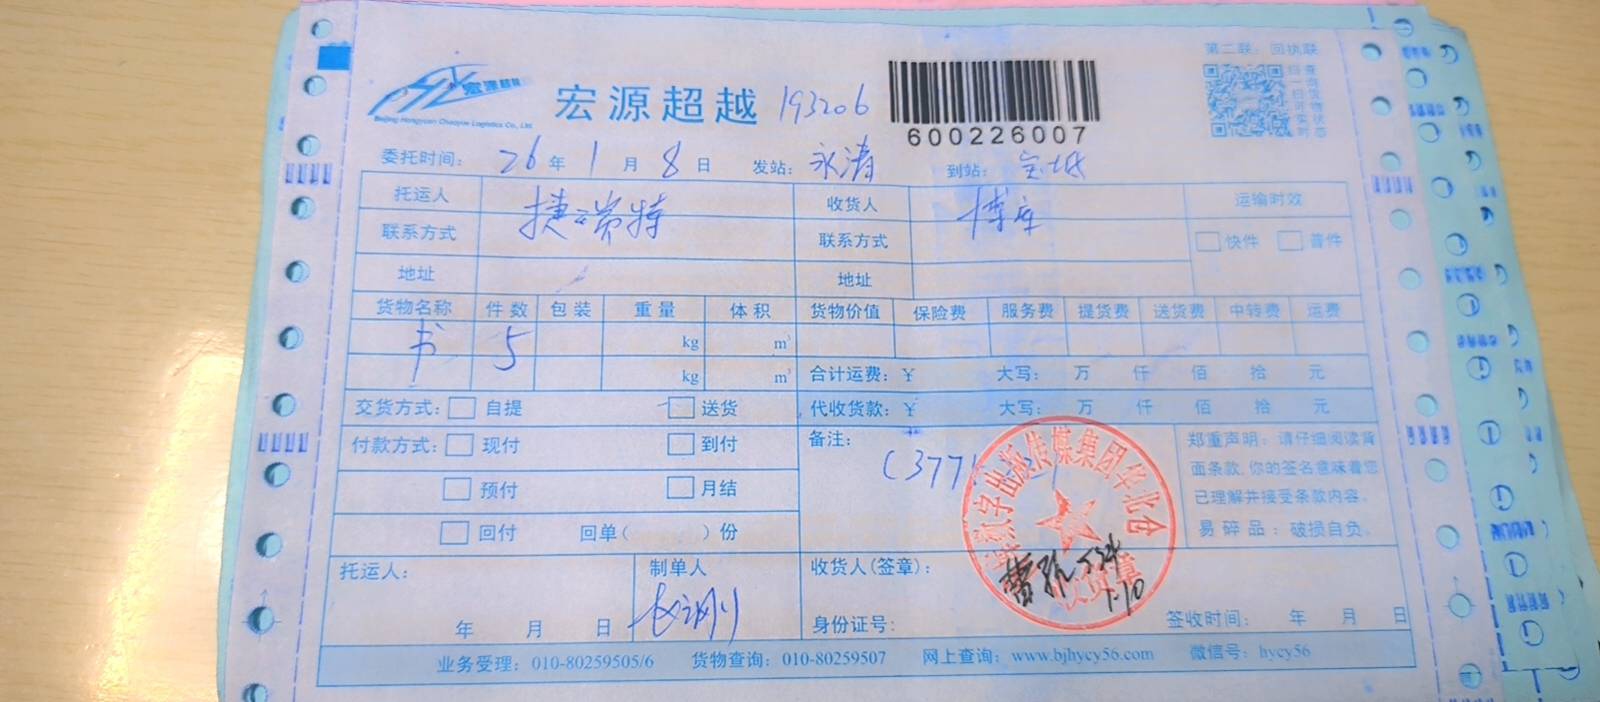 第二联：回执联
宏源超越
Beijing Hongyuan Chaoyue Logistics Co., Ltd.
宏源超越 193206
600226007
委托时间： 26 年 1 月 8 日 发站：永清 到站：宝坻
托运人 捷瑞特 收货人 博库 运输时效
联系方式 联系方式 快件 普件
地址 地址
货物名称 件数 包装 重量 体积 货物价值 保险费 服务费 提货费 送货费 中转费 运费
书 5 kg m³
kg m³ 合计运费：¥ 大写： 万 仟 佰 拾 元
交货方式： 自提 送货 代收货款：¥ 大写： 万 仟 佰 拾 元
付款方式： 现付 到付 备注：
预付 月结
回付 回单（ ）份
郑重声明：请仔细阅读背
面条款，你的签名意味着您
已理解并接受条款内容。
易碎品：破损自负。
数字出版传媒集团华北仓
托运人： 制单人 收货人(签章)：
1.10
年 月 日 身份证号： 签收时间： 年 月 日
业务受理：010-80259505/6 货物查询：010-80259507 网上查询：www.bjhycy56.com 微信号：hycy56